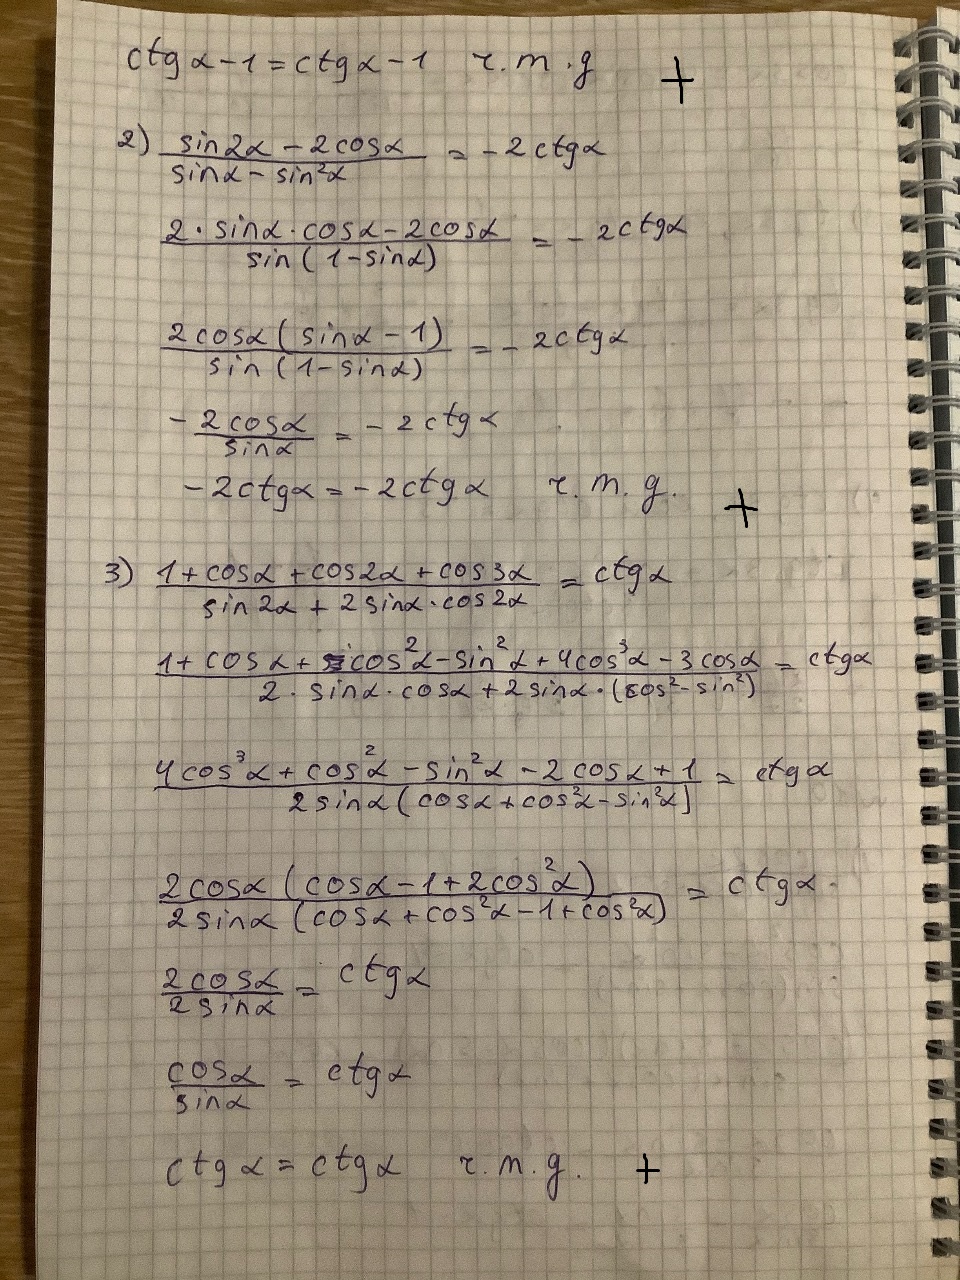 ctgα-1=ctgα-1 ч.т.д +
2) (sin2α-2cosα)/(sinα-sin²α) = -2ctgα
(2·sinα·cosα-2cosα)/(sin(1-sinα)) = -2ctgα
(2cosα(sinα-1))/(sin(1-sinα)) = -2ctgα
-2cosα/sinα = -2ctgα
-2ctgα=-2ctgα ч.т.д. +
3) (1+cosα+cos2α+cos3α)/(sin2α+2sinα·cos2α) = ctgα
(1+cosα+cos²α-sin²α+4cos³α-3cosα)/(2·sinα·cosα+2sinα·(cos²-sin²)) = ctgα
(4cos³α+cos²α-sin²α-2cosα+1)/(2sinα(cosα+cos²α-sin²α)) = ctgα
(2cosα(cosα-1+2cos²α))/(2sinα(cosα+cos²α-1+cos²α)) = ctgα
2cosα/2sinα = ctgα
cosα/sinα = ctgα
ctgα=ctgα ч.т.д. +